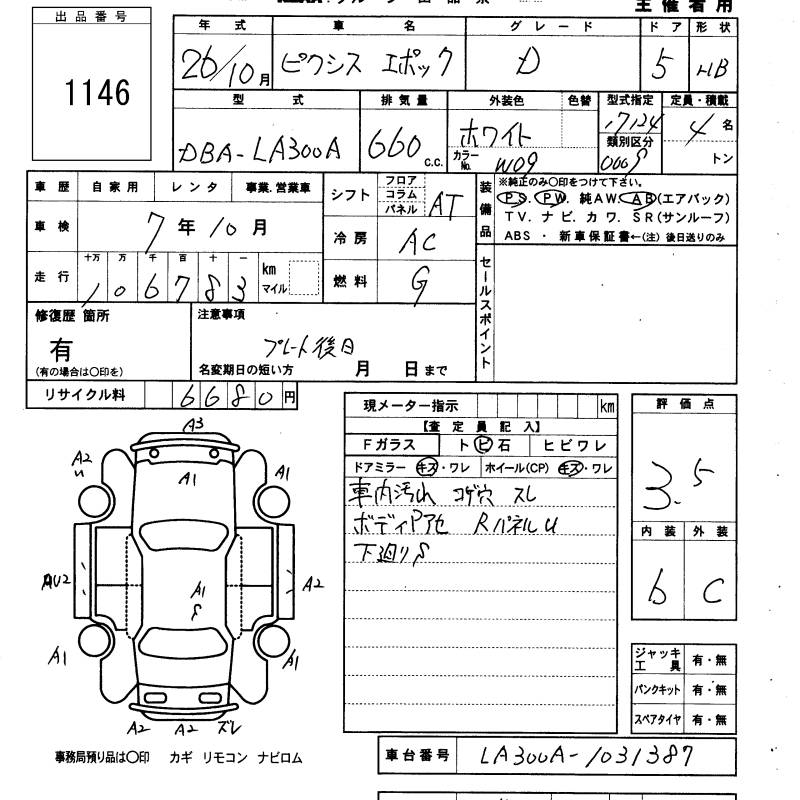 主催者用
出品番号
1146
年式 車名 グレード ドア 形状
26/10月 ピクシス エポック D 5 HB
型式 排気量 外装色 色替 型式指定 定員・積載
DBA-LA300A 660 c.c. ホワイト カラーNo. W09 17124 類別区分 0008 4名 トン
車歴 自家用 レンタ 事業.営業車
車検 7年10月
走行 十万 万 千 百 十 一
106783 km マイル
シフト フロア コラム パネル AT
冷房 AC
燃料 G
装備品
※純正のみ〇印をつけて下さい。
PS. PW. 純AW. AB(エアバック)
TV. ナビ. カワ. SR(サンルーフ)
ABS ・ 新車保証書←(注) 後日送りのみ
セールスポイント
修復歴 箇所
有
(有の場合は〇印を)
注意事項
プレート後日
名変期日の短い方 月 日まで
リサイクル料 6680円
現メーター指示 km
【査定員記入】
Fガラス ト ビ 石 ヒビワレ
ドアミラー キズ・ワレ ホイール(CP) キズ・ワレ
車内汚れ コゲ穴 スレ
ボディPアセ RパネルU
下廻りS
評価点
3.5
内装 外装
b C
A3
A2
U
A1
A1
AU2
A1
S
A2
A1
A1
A2 A2 ズレ
ジャッキ工具 有・無
パンクキット 有・無
スペアタイヤ 有・無
事務局預り品は〇印 カギ リモコン ナビロム
車台番号 LA300A-1031387